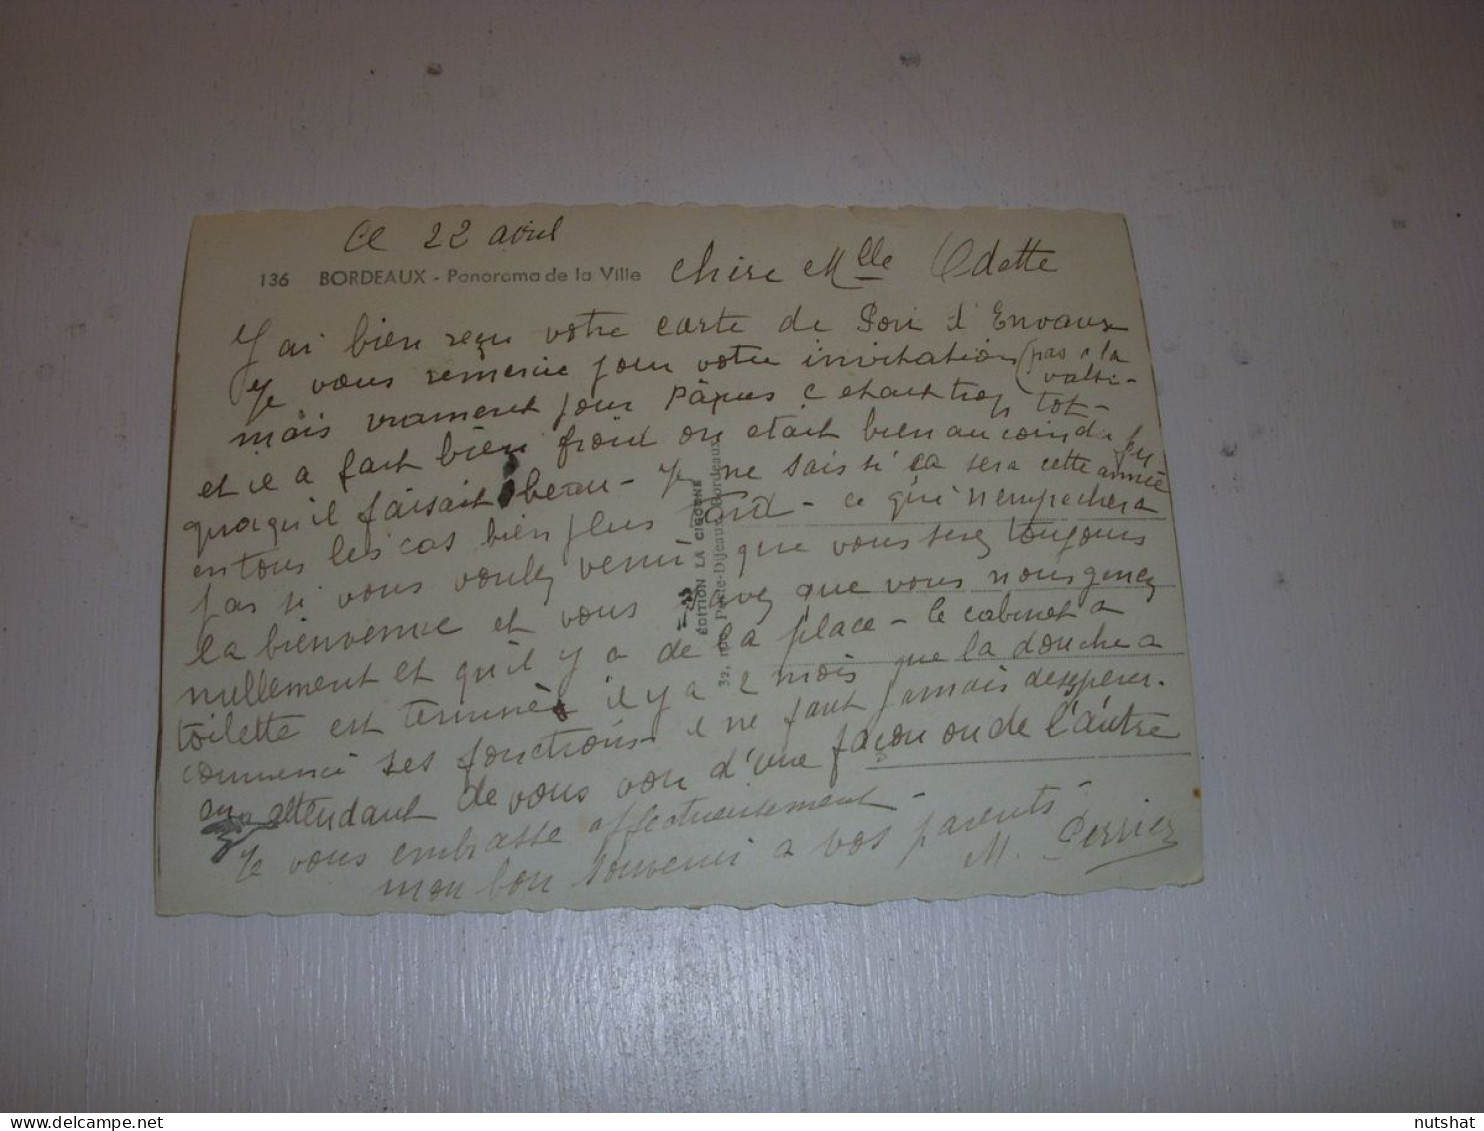 Ce 22 avril
136 BORDEAUX - Panorama de la Ville
Chère Mlle Odette
J'ai bien reçu votre carte de Port d'Envaux
Je vous remercie pour votre invitation (pas a la
mais vraiment pour Pâques c etait trop tot -
et il a fait bien froid on etait bien au coin du feu
quoiqu'il faisait beau - Je ne sais si ca sera cette année
en tous les cas bien plus tard - ce qui n empechera
pas si vous voulez venir que vous serez toujours
la bienvenue et vous savez que vous nous genez
nullement et qu'il y a de la place - le cabinet a
toilette est terminée il y a 2 mois que la douche a
commencé ses fonctions - il ne faut jamais desesperer.
en attendant de vous voir d'une façon ou de l'autre
Je vous embrasse affectueusement -
mon bon souvenir a vos parents -
M. Perrier
EDITION LA CIGOGNE
32, rue Porte-Dijeaux, Bordeaux
delcampe.net
nutshat